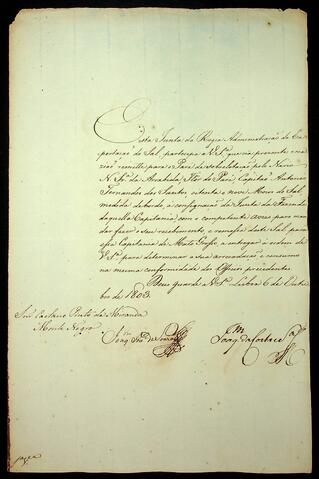 Esta Junta da Regia Administração da Ex-
portação do Sal, participa a V. Sª. que na prezente oca-
zião remette para o Pará de sobrecelente pelo Navio
N. Srª. da Arrabida Flor do Pará Capitão Antonio
Fernandes dos Santos setenta e nove Moios de Sal
medida de bordo, á consignação da Junta da Fazenda
daquella Capitania, com o competente avizo para man-
dar fazer o seu recebimento, e remessa deste Sal para
essa Capitania de Mato Groso, a entregar á ordem de
V. Sª. para determinar a sua arrecadação e consumo
na mesma conformidade dos Officios precedentes
Deos guarde a V. Sª. Lisboa 6 de Outu-
bro de 1803.
Snr. Caetano Pinto de Miranda
Monte Negro
Joaqm.
Joaqm. da Costa e